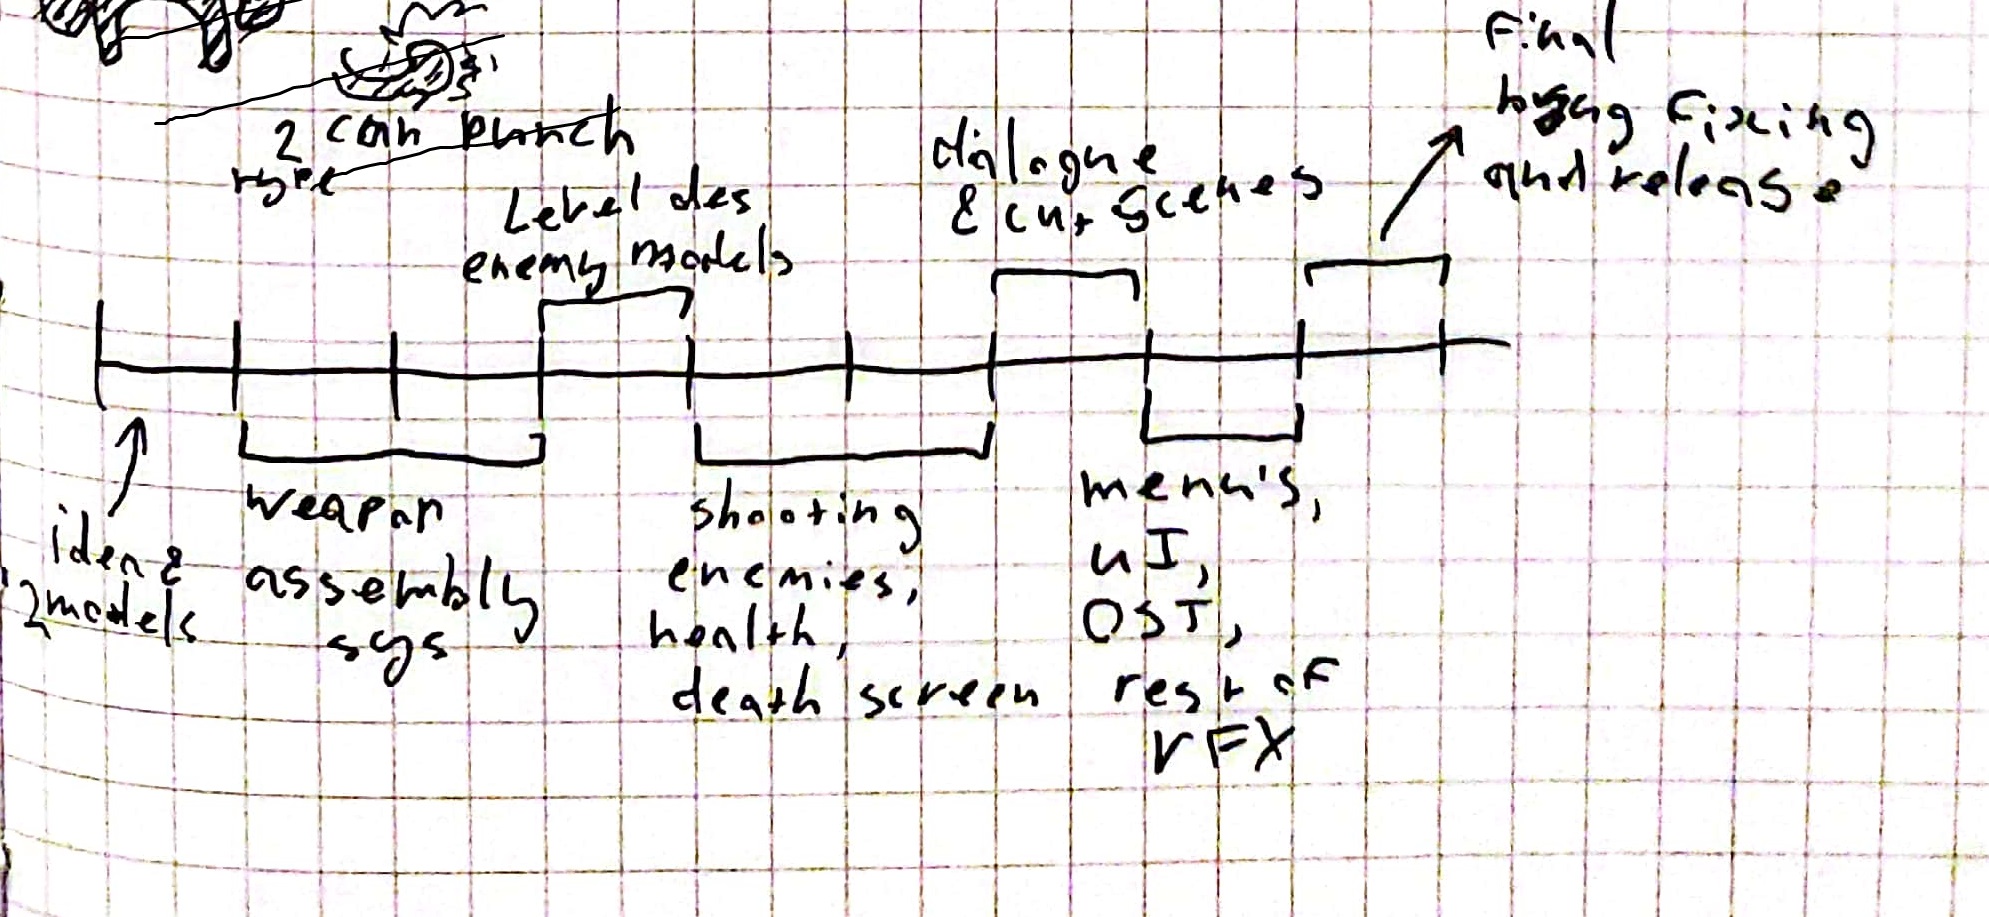 2 can punch
type
Level des
enemy models
dialogue
& cut scenes
Final
bug fixing
and release
idea &
2 models
weapon
assembly
sys
shooting
enemies,
health,
death screen
menu's,
UI,
OST,
rest of
VFX